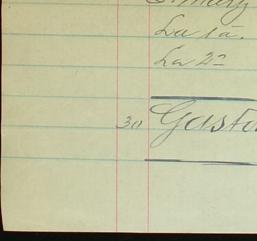 La 1a.
La 2a
30 Gasto